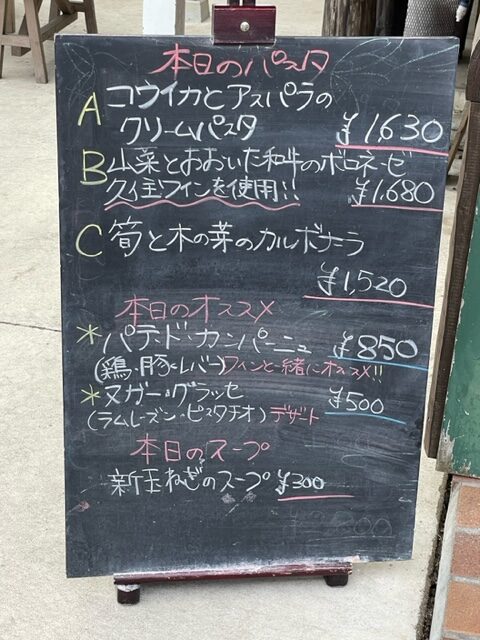 本日のパスタ
A コウイカとアスパラの
クリームパスタ ¥1,630
B 山菜とおおいた和牛のボロネーゼ
久住ワインを使用!! ¥1,680
C 筍と木の芽のカルボナーラ
¥1,520
本日のオススメ
*パテ・ド・カンパーニュ ¥850
(鶏・豚・レバー)ワインと一緒にオススメ!!
*ヌガー・グラッセ ¥500
(ラムレーズン・ピスタチオ)デザート
本日のスープ
新玉ねぎのスープ ¥300